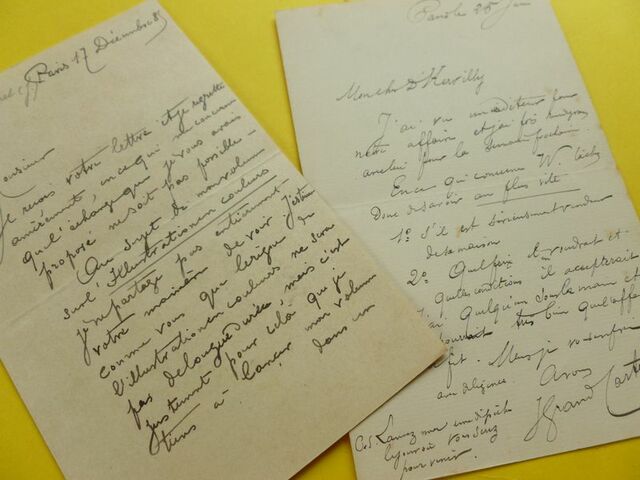 Paris 17 Décembre 8
Monsieur
Je reçois votre lettre et je regrette
amèrement, en ce qui me concerne
que l'échange que je vous avais
proposé ne soit pas possible -
Au sujet de mon volume
sur l'Illustration en couleurs
je ne partage pas entièrement
votre manière de voir. J'estime
comme vous que le règne de
l'illustration en couleurs ne sera
pas de longue durée mais c'est
justement pour cela que je
tiens à lancer mon volume
dans un
Paris le 25 Jan
Mon cher D'Hervilly
J'ai vu un éditeur pour
notre affaire et j'ai fois
pour la semaine prochaine
En ce qui concerne W.
Donc désavoir au plus vite
1º S'il est sérieusement vendeur
de sa maison
2º Quel prix il voudrait et
quelles conditions il accepterait
J'ai quelqu'un sous la main et
pourrait très bien que l'affaire
fit. Mais je vous en prie
diligence.
A vous
J Grand-Carte
Lancez moi une dépêche
le jour où vous serez
pour venir.